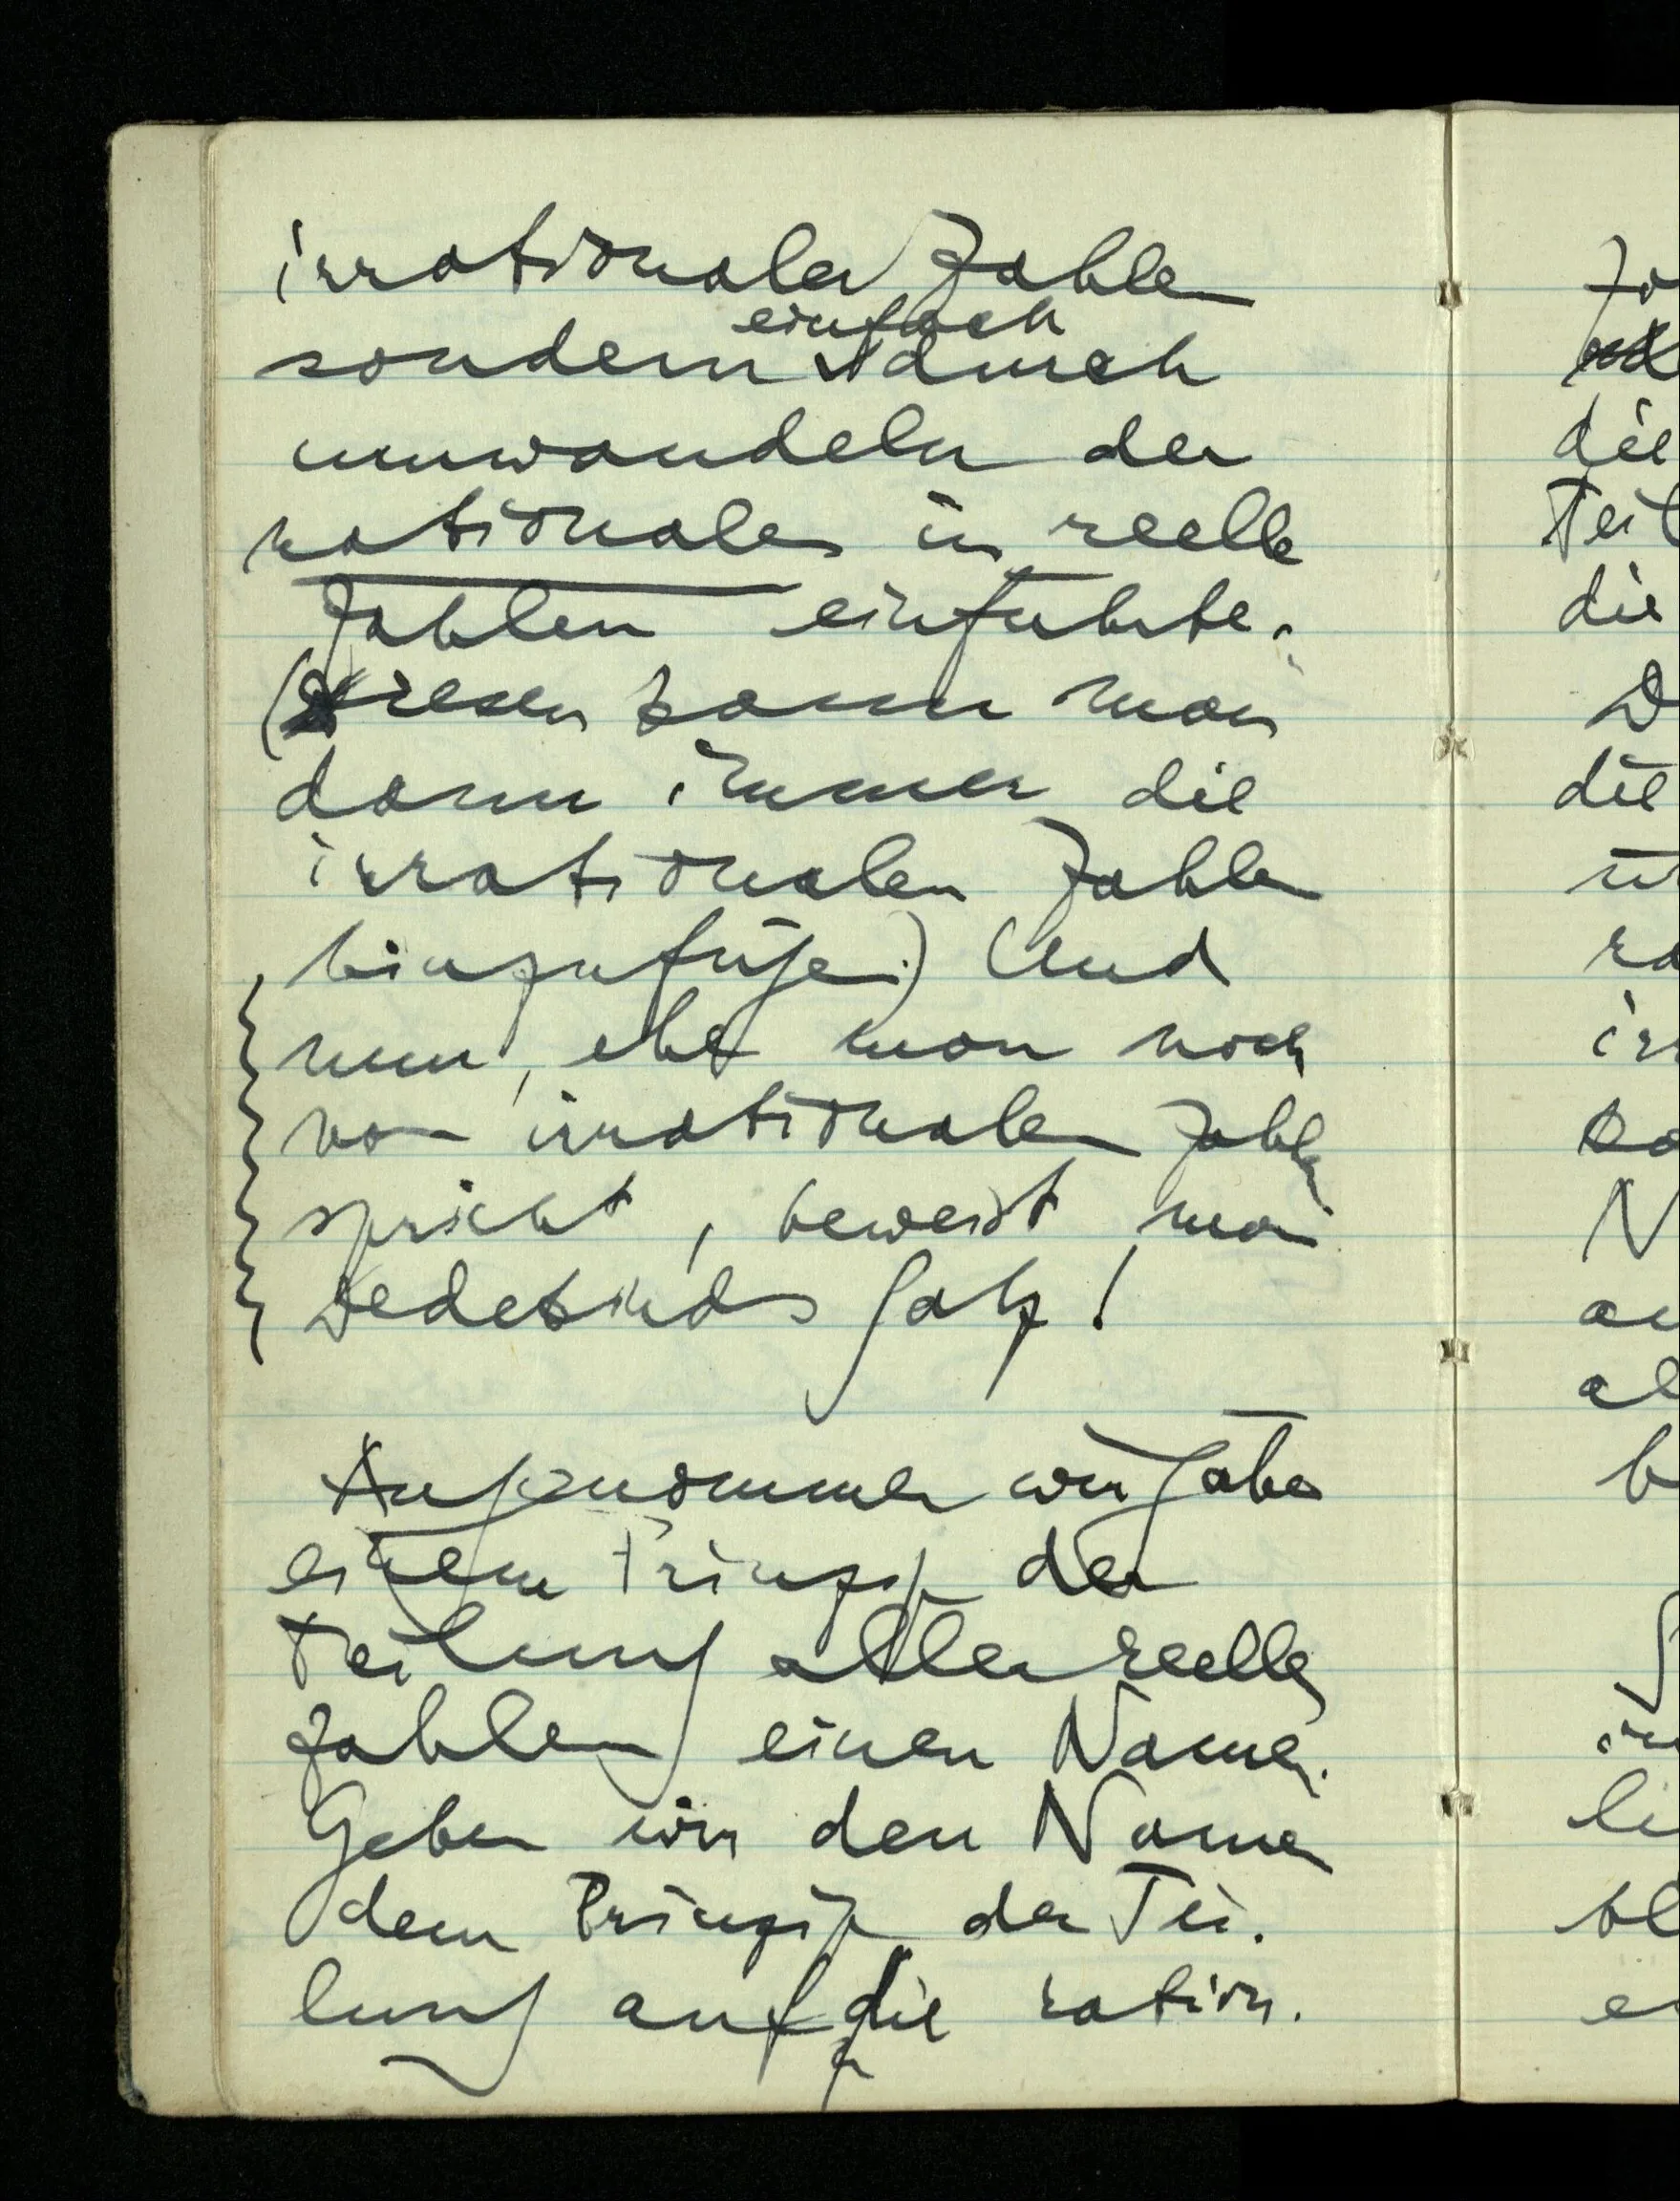 irrationaler Zahlen
einfach
sondern durch
umwandeln der
rationalen in reelle
Zahlen einführte.
(Diesen kann man
dann immer die
irrationalen Zahlen
hinzufügen.) Und
nun, ehe man noch
von irrationalen Zahlen
spricht, beweist man
Dedekinds Satz!
Angenommen wir gäben
einem Prinzip der
Teilung aller reellen
Zahlen einen Namen.
Geben wir den Namen
dem Prinzip der Tei.
lung auf die ration.
die
die
die